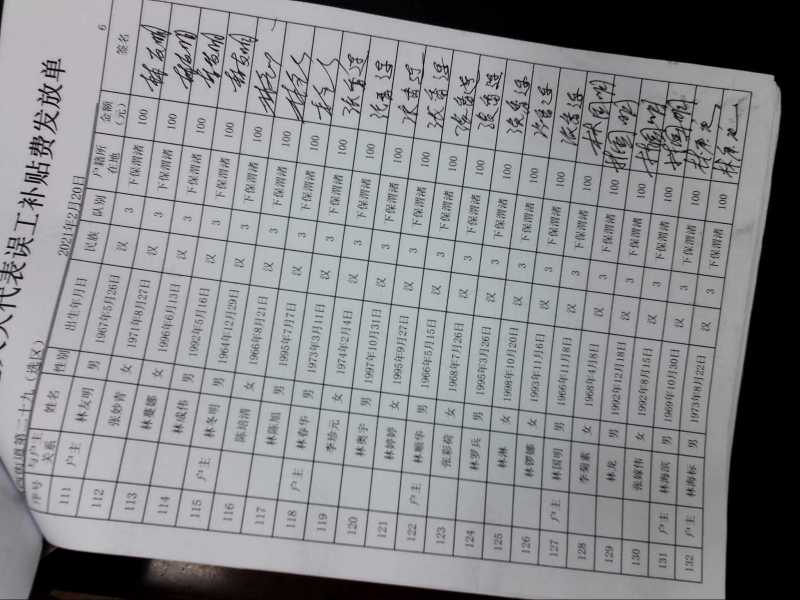 大代表误工补贴费发放单
街道第二十九（选区） 2021年2月20日 6
序号 与户主关系 姓名 性别 出生年月日 民族 队别 户籍所在地 金额（元） 签名
111 户主 林友明 男 1967年5月26日 汉 3 下保渭渚 100 林友明
112 张妙青 女 1971年8月27日 汉 3 下保渭渚 100 林友明
113 林蔓娜 女 1996年6月13日 汉 3 下保渭渚 100 林友明
114 林成伟 男 1992年5月16日 汉 3 下保渭渚 100 林友明
115 户主 林冬明 男 1964年12月29日 汉 3 下保渭渚 100
116 陈培清 女 1966年8月21日 汉 3 下保渭渚 100
117 林陈旭 男 1995年7月7日 汉 3 下保渭渚 100
118 户主 林春华 男 1973年3月11日 汉 3 下保渭渚 100
119 李珍元 女 1974年2月4日 汉 3 下保渭渚 100
120 林奥宇 男 1997年10月31日 汉 3 下保渭渚 100
121 林婷婷 女 1995年9月27日 汉 3 下保渭渚 100
122 户主 林顺华 男 1966年5月15日 汉 3 下保渭渚 100
123 张彩荷 女 1968年7月26日 汉 3 下保渭渚 100
124 林罗兵 男 1995年3月26日 汉 3 下保渭渚 100
125 林淋 女 1998年10月20日 汉 3 下保渭渚 100
126 林锣娜 女 1993年11月6日 汉 3 下保渭渚 100
127 户主 林国明 男 1966年11月8日 汉 3 下保渭渚 100 林国明
128 李菊素 女 1968年4月8日 汉 3 下保渭渚 100 林国明
129 林龙 男 1992年12月18日 汉 3 下保渭渚 100 林国明
130 张嫁伟 女 1992年8月15日 汉 3 下保渭渚 100 林国明
131 户主 林海滨 男 1969年10月30日 汉 3 下保渭渚 100
132 户主 林海标 男 1973年8月22日 汉 3 下保渭渚 100